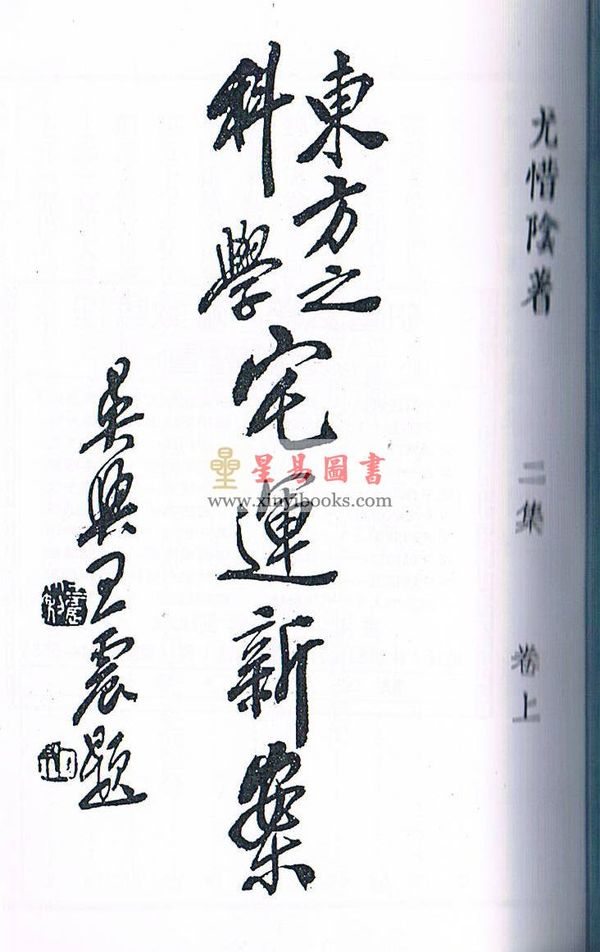 尤惜陰著 二集 卷上
東方之
科學
宅運新案
吳興王震題
星易圖書
www.xinyibooks.com